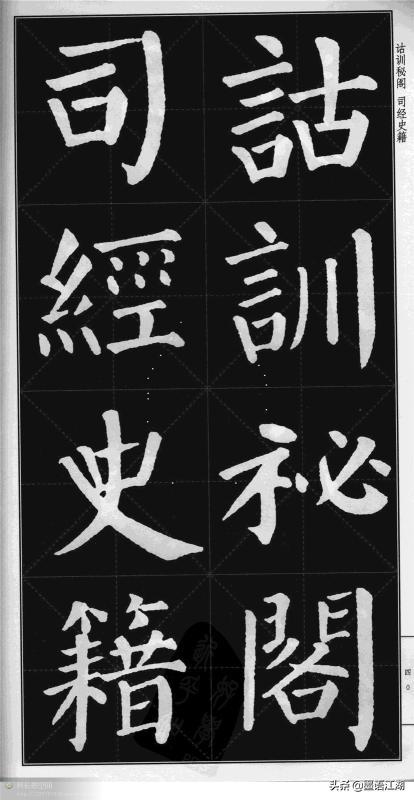 詁訓秘閣
司經史籍
诂训秘阁 司经史籍
四〇
头条 @墨语江湖